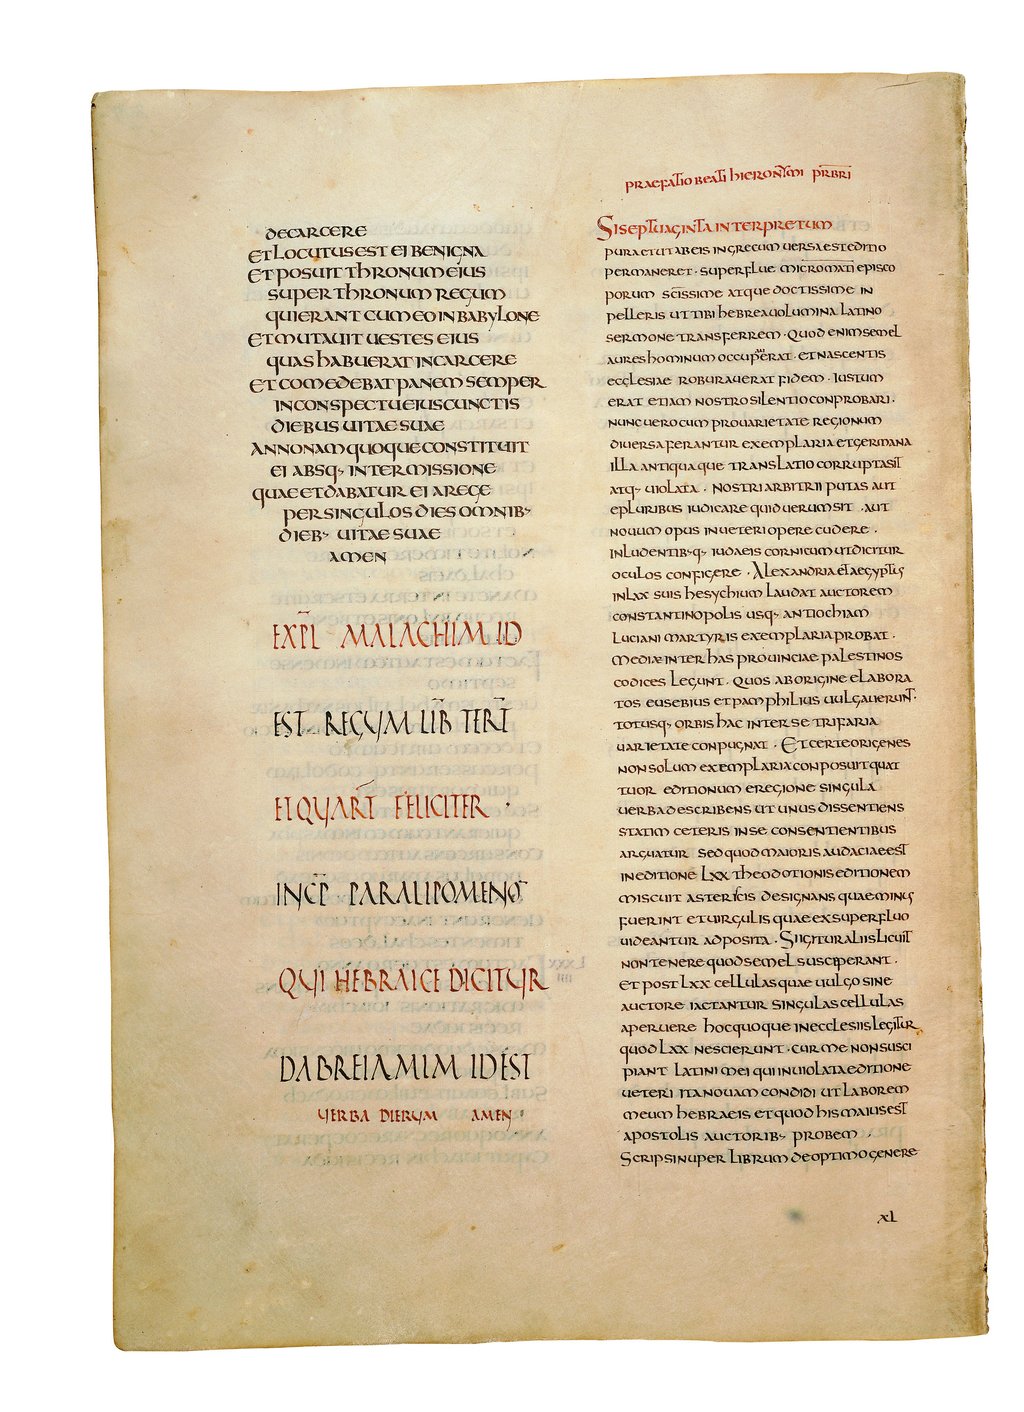 DE CARCERE
ET LOCUTUS EST EI BENIGNA
ET POSUIT THRONUM EIUS
SUPER THRONUM REGUM
QUI ERANT CUM EO IN BABYLONE
ET MUTAUIT UESTES EIUS
QUAS HABUERAT IN CARCERE
ET COMEDEBAT PANEM SEMPER
IN CONSPECTU EIUS CUNCTIS
DIEBUS UITAE SUAE
ANNONAM QUOQUE CONSTITUIT
EI ABSQ· INTERMISSIONE
QUAE ET DABATUR EI A REGE
PER SINGULOS DIES OMNIB·
DIEB· UITAE SUAE
AMEN
EXPL MALACHIM ID
EST REGUM LIB TERT
ET QUART FELICITER ·
INCP PARALIPOMENO
QUI HEBRAICE DICITUR
DABREIAMIM ID EST
UERBA DIERUM AMEN
PRAEFATIO BEATI HIERONYMI PRBRI
SI SEPTUAGINTA INTERPRETUM
PURA ET UT AB EIS IN GRECUM UERSA EST EDITIO
PERMANERET · SUPERFLUE MI CROMATI EPISCO
PORUM SCISSIME ATQUE DOCTISSIME IN
PELLERIS UT TIBI HEBREA UOLUMINA LATINO
SERMONE TRANSFERREM · QUOD ENIM SEMEL
AURES HOMINUM OCCUPERAT · ET NASCENTIS
ECCLESIAE ROBURAUERAT FIDEM · IUSTUM
ERAT ETIAM NOSTRO SILENTIO CONPROBARI ·
NUNC UERO CUM PRO UARIETATE REGIONUM
DIUERSA FERANTUR EXEMPLARIA ET GERMANA
ILLA ANTIQUAQUE TRANSLATIO CORRUPTA SIT
ATQ· UIOLATA · NOSTRI ARBITRII PUTAS AUT
E PLURIBUS IUDICARE QUID UERUM SIT · AUT
NOUUM OPUS IN UETERI OPERE CUDERE ·
INLUDENTIB·Q· IUDAEIS CORNICUM UT DICITUR
OCULOS CONFIGERE · ALEXANDRIA ET AEGYPTUS
IN LXX SUIS HESYCHIUM LAUDAT AUCTOREM
CONSTANTINOPOLIS USQ· ANTIOCHIAM
LUCIANI MARTYRIS EXEMPLARIA PROBAT ·
MEDIAE INTER HAS PROUINCIAE PALESTINOS
CODICES LEGUNT · QUOS AB ORIGINE ELABORA
TOS EUSEBIUS ET PAMPHILIUS UULGAUERUNT ·
TOTUSQ· ORBIS HAC INTER SE TRIFARIA
UARIETATE CONPUGNAT · ET CERTE ORIGENES
NON SOLUM EXEMPLARIA CONPOSUIT QUAT
TUOR EDITIONUM E REGIONE SINGULA
UERBA DESCRIBENS UT UNUS DISSENTIENS
STATIM CETERIS IN SE CONSENTIENTIBUS
ARGUATUR SED QUOD MAIORIS AUDACIAE EST
IN EDITIONE LXX THEODOTIONIS EDITIONEM
MISCUIT ASTERISCIS DESIGNANS QUAE MINUS
FUERINT ET UIRGULIS QUAE EX SUPERFLUO
UIDEANTUR ADPOSITA · SI IGITUR ALIIS LICUIT
NON TENERE QUOD SEMEL SUSCIPERANT ·
ET POST LXX CELLULAS QUAE UULGO SINE
AUCTORE IACTANTUR SINGULAS CELLULAS
APERUERE HOCQUOQUE IN ECCLESIIS LEGITUR
QUOD LXX NESCIERUNT · CUR ME NON SUSCI
PIANT LATINI MEI QUI INUIOLATA EDITIONE
UETERI ITA NOUAM CONDIDI UT LABOREM
MEUM HEBRAEIS ET QUOD HIS MAIUS EST
APOSTOLIS AUCTORIB· PROBEM ·
SCRIPSI NUPER LIBRUM DE OPTIMO GENERE
XL